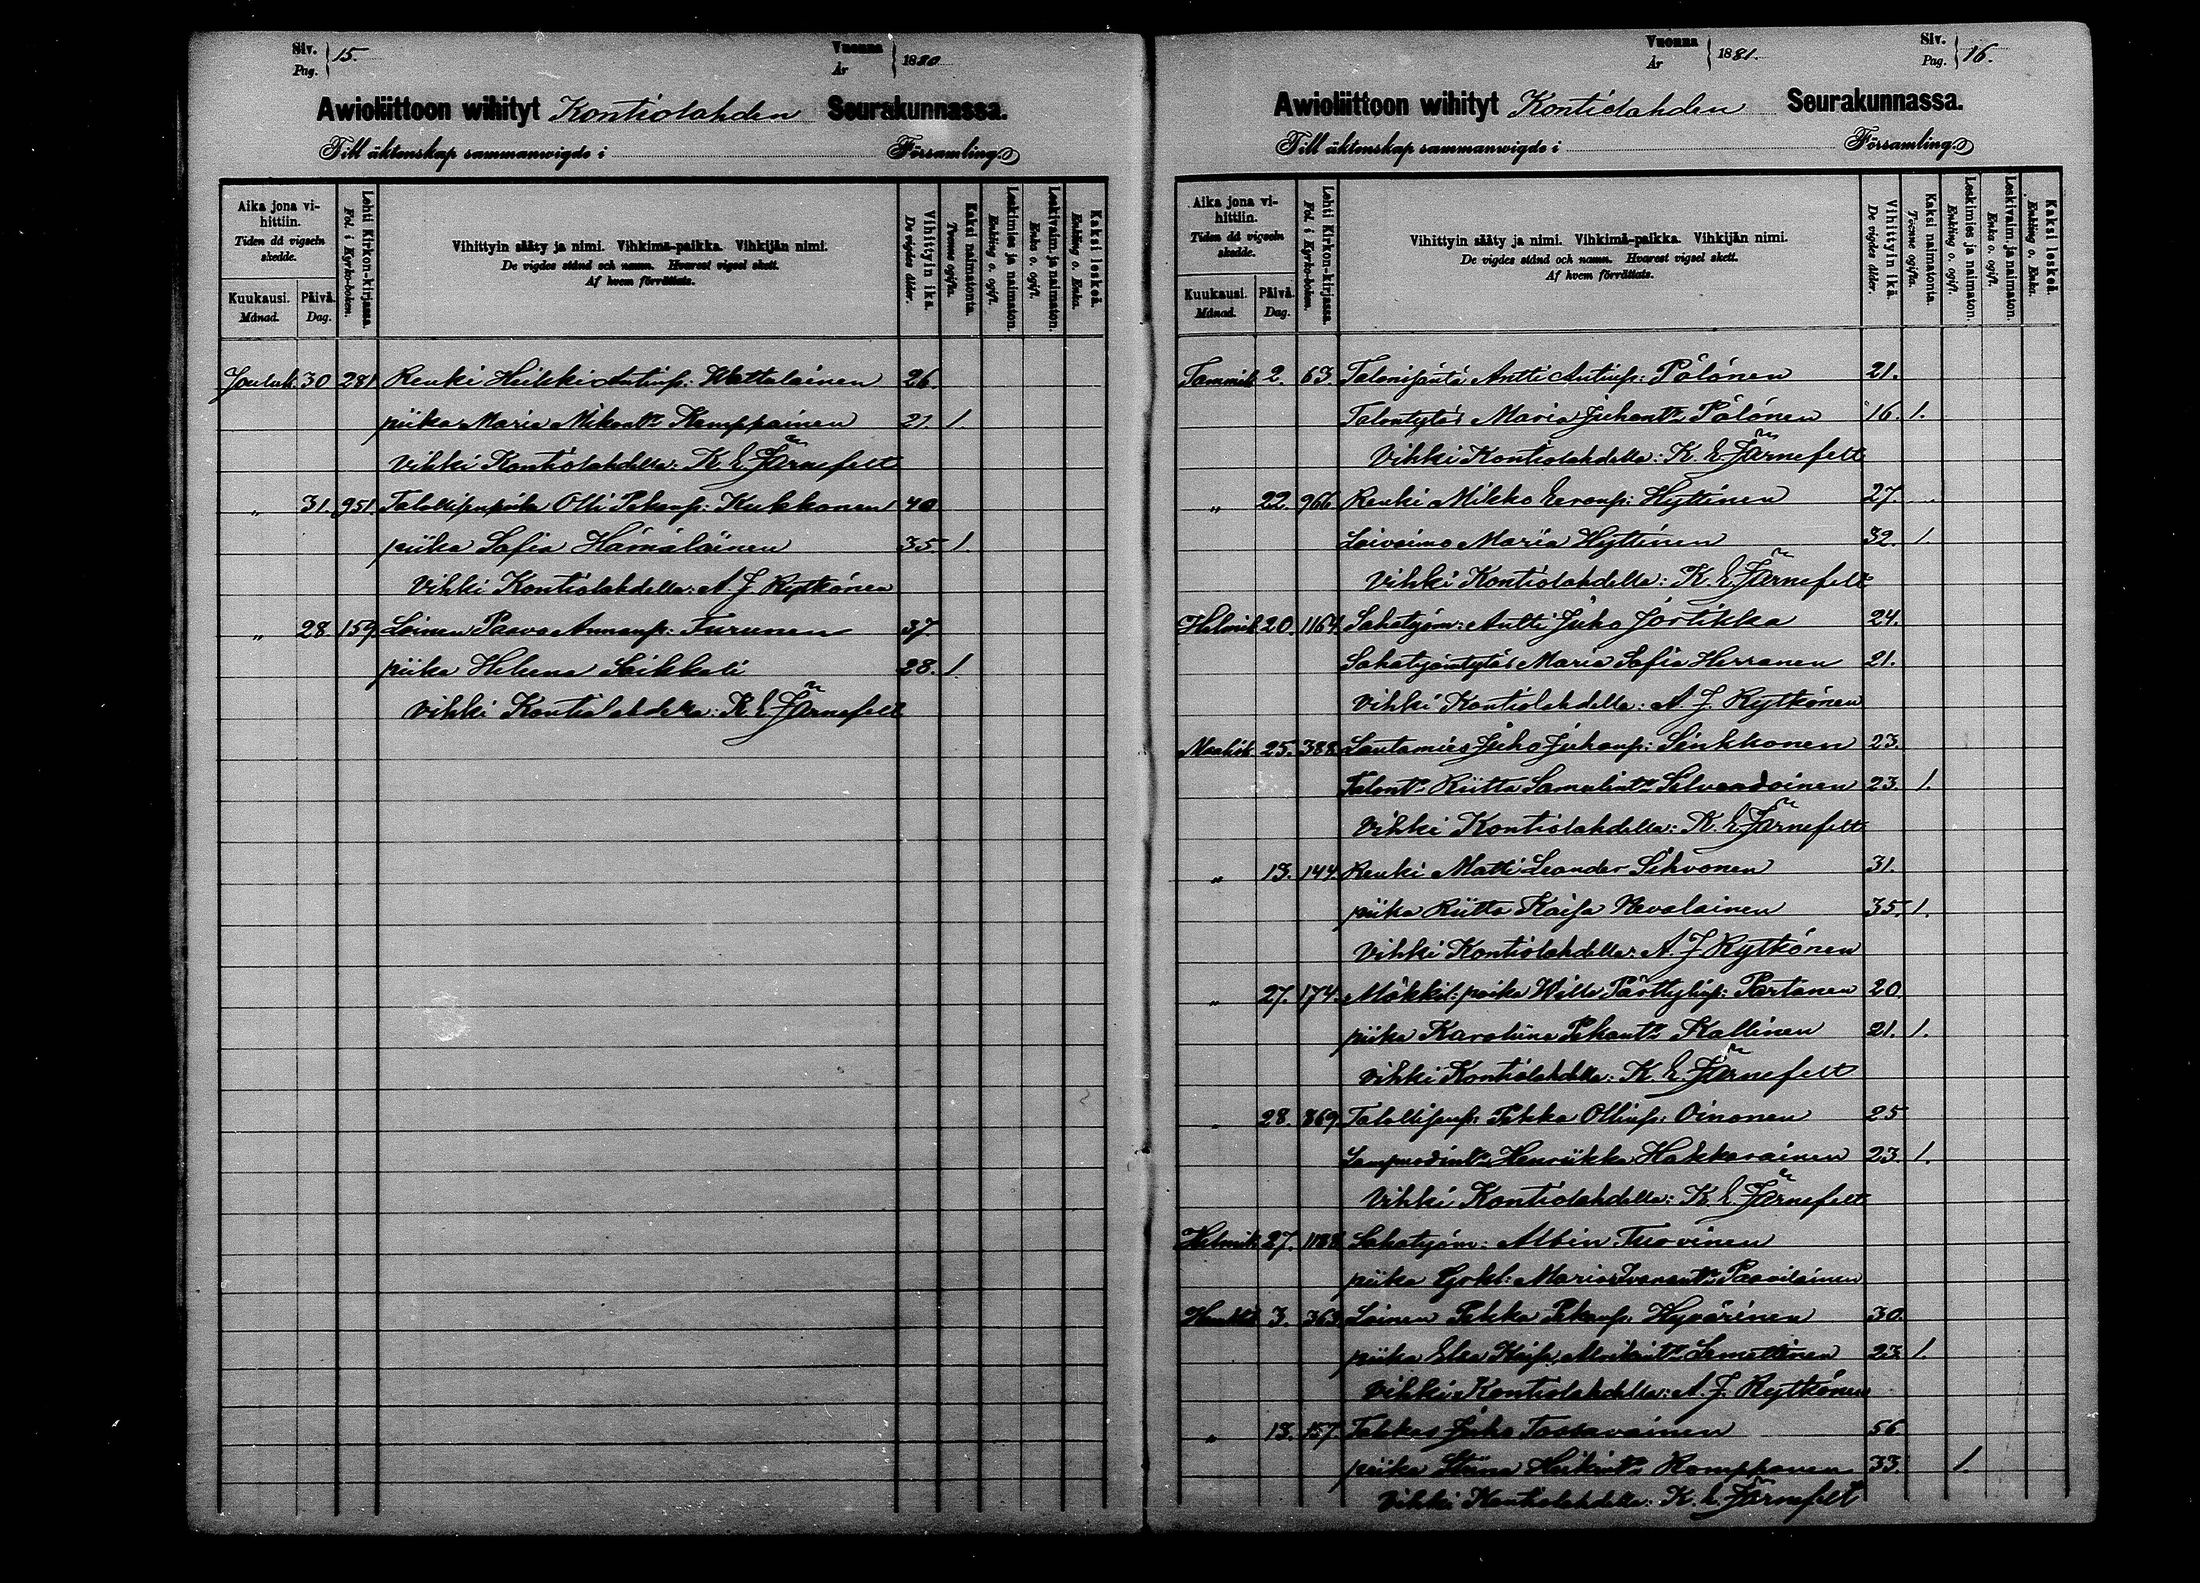 Siv. Pag. 15. Vuonna År 1880
Awioliittoon wihityt Kontiolahden Seurakunnassa.
Till äktenskap sammanwigde i Församling.
Aika jona vihittiin. Tiden då vigseln skedde.
Kuukausi. Månad. Päivä. Dag.
Lehti Kirkon-kirjassa. Fol. i Kyrko-boken.
Vihittyin sääty ja nimi. Vihkimä-paikka. Vihkijän nimi.
De vigdes stånd och namn. Hvarest vigsel skett.
Af hvem förrättats.
Vihittyin ikä. De vigdes ålder.
Kaksi naimatonta. Tvenne ogifta.
Leskimies ja naimaton. Enkling o. ogift.
Leskivaim. ja naimaton. Enka o. ogift.
Kaksi leskeä. Enkling o. Enka.
Jouluk. 30 281 Renki Heikki Antinp: Wattulainen 26
piika Maria Mikont: Kemppainen 21 1
Vihki Kontiolahdella: K. E. Järnefelt
„ 31. 951. Talollisenpoika Olli Pekanp: Kukkonen 40
piika Sofia Hämäläinen 35 1.
Vihki Kontiolahdella: A. J. Rytkönen
„ 28 159. Loinen Paavo Turunen 37.
piika Helena Soikkeli 28. 1.
Vihki Kontiolahdella: K. E. Järnefelt
Siv. Pag. 16. Vuonna År 1881.
Awioliittoon wihityt Kontiolahden Seurakunnassa.
Till äktenskap sammanwigde i Församling.
Aika jona vihittiin. Tiden då vigseln skedde.
Kuukausi. Månad. Päivä. Dag.
Lehti Kirkon-kirjassa. Fol. i Kyrko-boken.
Vihittyin sääty ja nimi. Vihkimä-paikka. Vihkijän nimi.
De vigdes stånd och namn. Hvarest vigsel skett.
Af hvem förrättats.
Vihittyin ikä. De vigdes ålder.
Kaksi naimatonta. Tvenne ogifta.
Leskimies ja naimaton. Enkling o. ogift.
Leskivaim. ja naimaton. Enka o. ogift.
Kaksi leskeä. Enkling o. Enka.
Tammik 2. 63. Talonisäntä Antti Antinp: Pölönen 21.
Talontytär Maria Juhont: Pölönen 16. 1.
Vihki Kontiolahdella: K. E. Järnefelt
„ 22. 966 Renki Mikko Eeronp: Hyttinen 27.
Loisvaimo Maria Hyttinen 32. 1.
Vihki Kontiolahdella: K. E. Järnefelt
Helmik 20. 1164. Sahatyöm: Antti Juho Jortikka 24.
Sahatyöntytär Maria Sofia Herranen 21.
Vihki Kontiolahdella: A. J. Rytkönen
Maalisk 25. 388. Lautamies Juho Juhonp: Sinkkonen 23.
Talont: Riitta Samulint: 23. 1.
Vihki Kontiolahdella: K. E. Järnefelt
„ 13. 144. Renki Matti Leander Sihvonen 31.
piika Riitta Kaisa Nevalainen 35. 1.
Vihki Kontiolahdella: A. J. Rytkönen
„ 27. 174. Mökkil: poika Wille Pärttylinp: Partanen 20
piika Karoliina Pekant: Kallinen 21. 1.
Vihki Kontiolahdella: K. E. Järnefelt
„ 28. 869. Talollisenp: Pekka Ollinp: Oinonen 25
Henriikka Hakkarainen 23. 1.
Vihki Kontiolahdella: K. E. Järnefelt
Helmik 27. 1188 Sahatyöm: Albin Tuovinen
piika Maria Iivanant: Paavilainen
Huhtik 3. 363. Loinen Pekka Pekanp: Hyvärinen 30.
piika Elsa Kaisa Lemettinen 23. 1.
Vihki Kontiolahdella: A. J. Rytkönen
„ 13. 157. Juho Tossavainen 56
piika Stiina Heikint: Romppanen 33. 1.
Vihki Kontiolahdella: K. E. Järnefelt